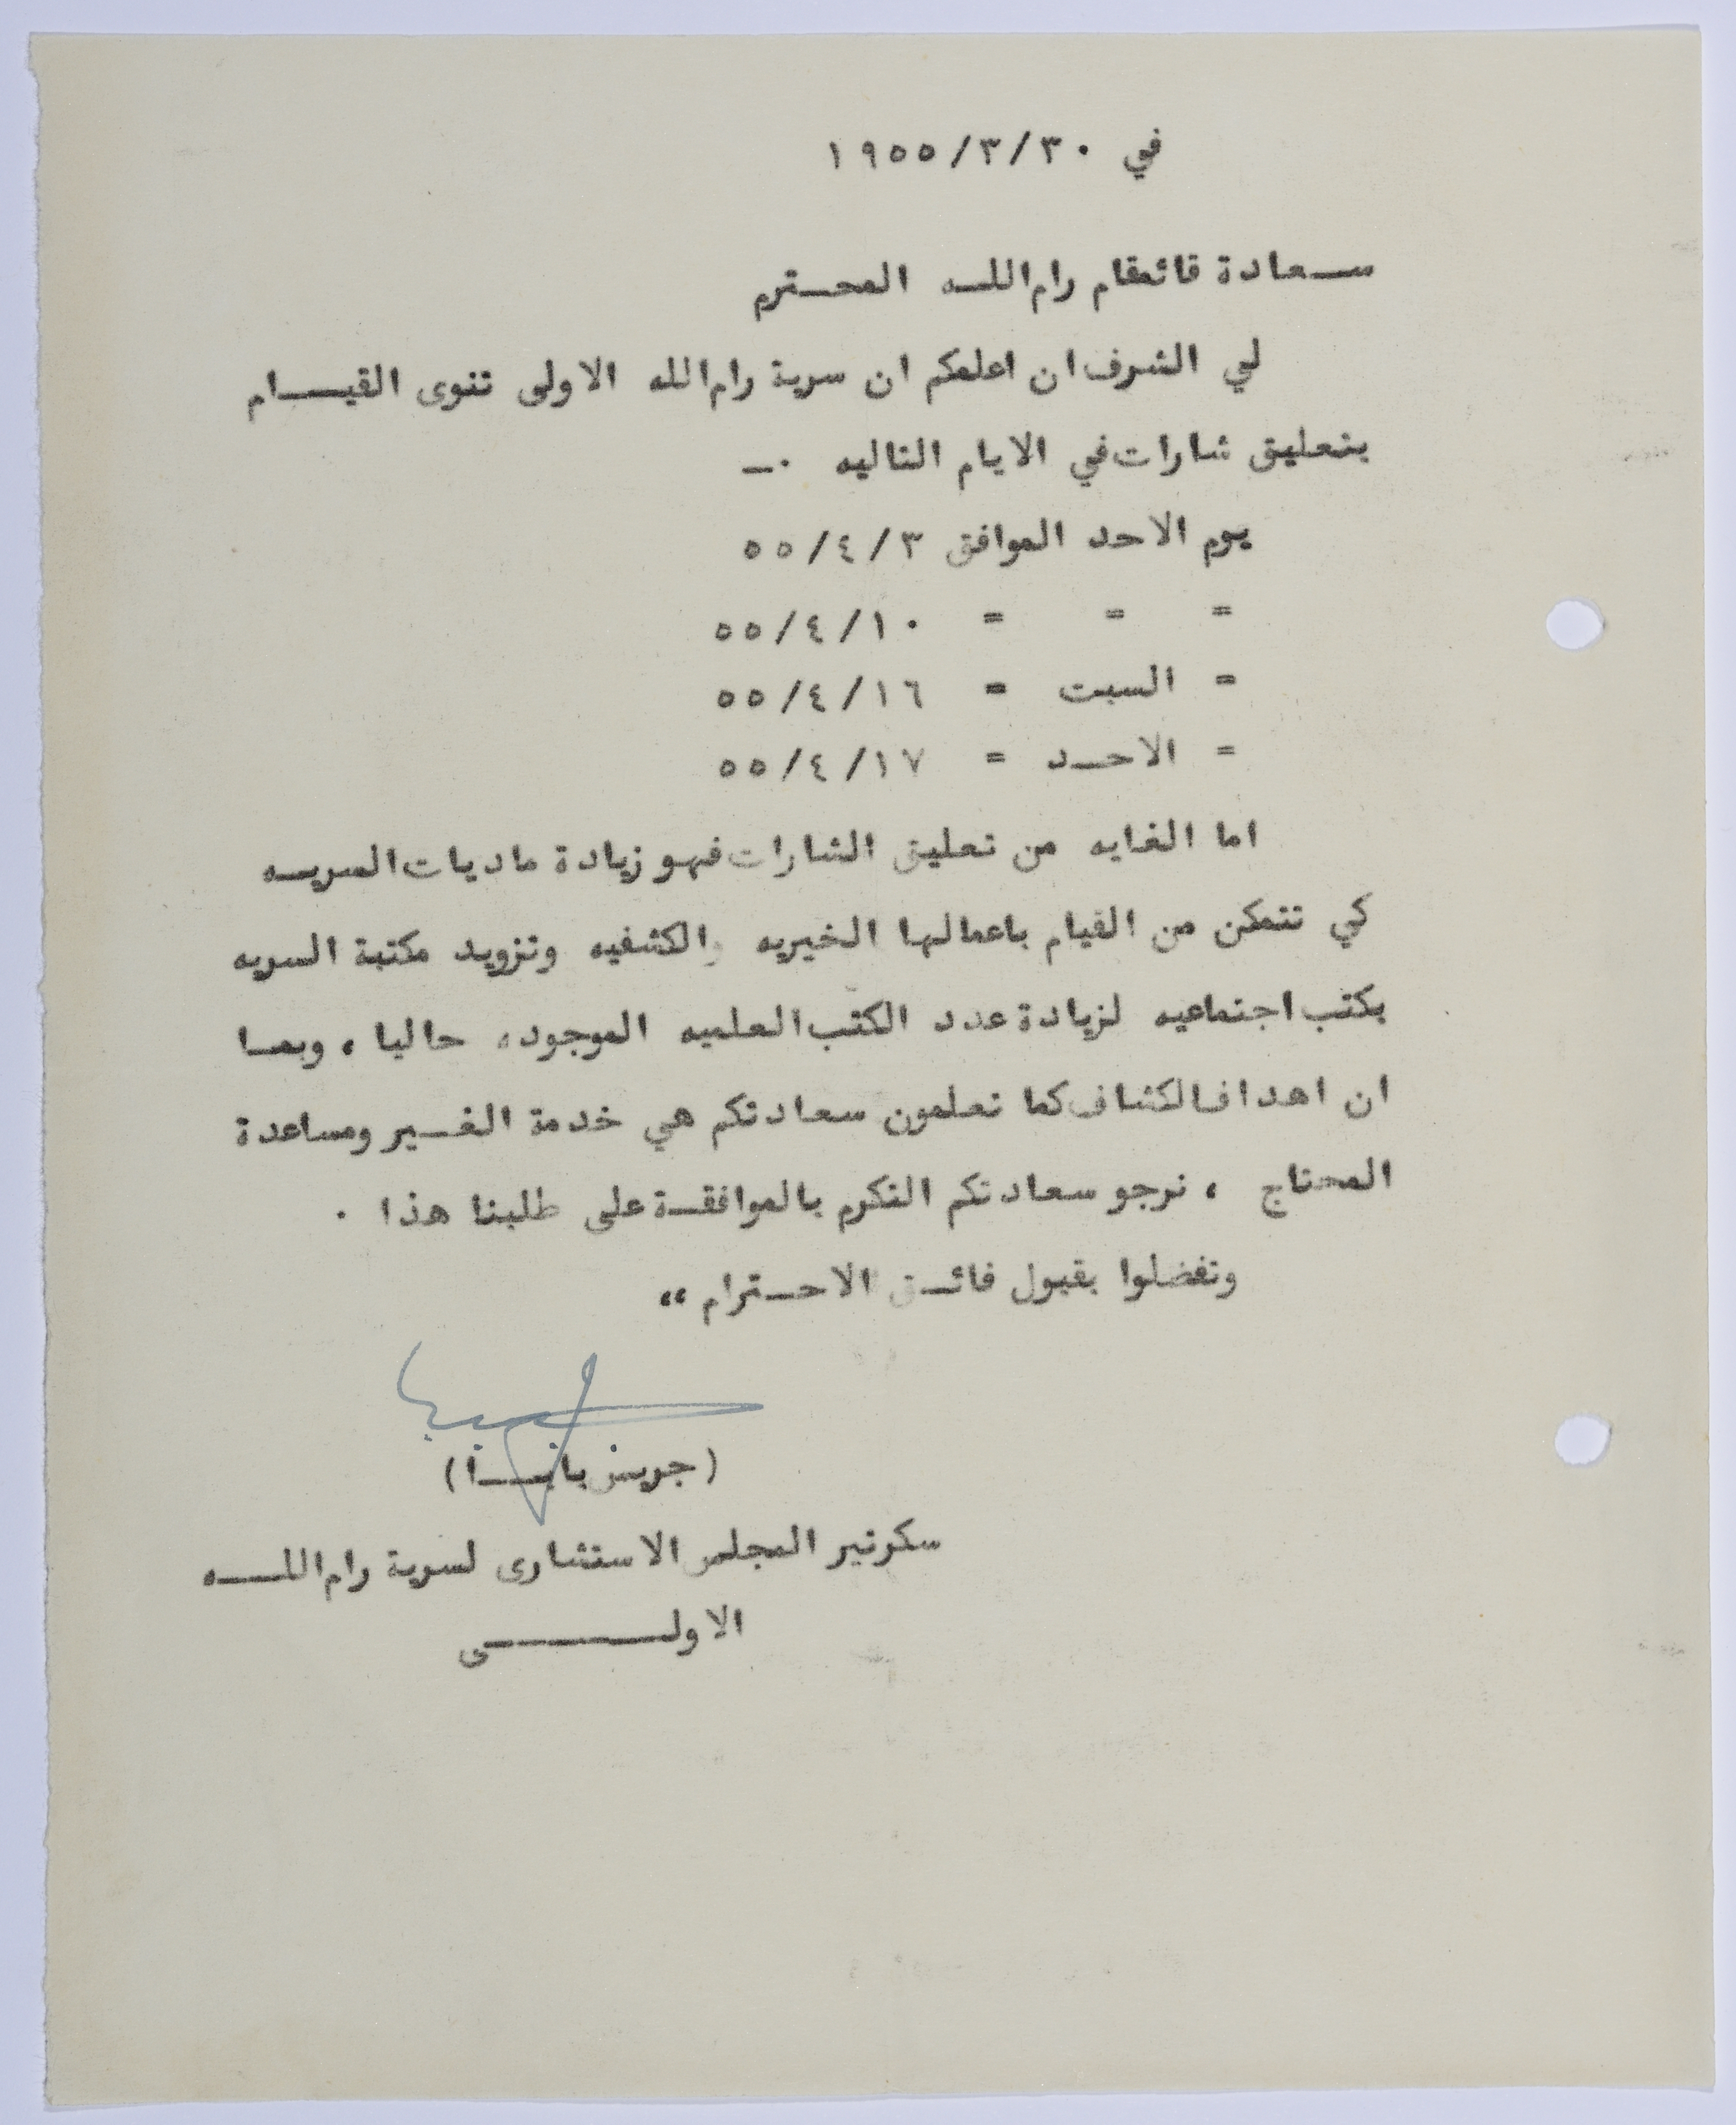 في ٣٠/٣/١٩٥٥
سعادة قائمقام رام الله المحترم
لي الشرف ان اعلمكم ان سرية رام الله الاولى تنوى القيام
بتعليق شارات في الايام التاليه ٠ــ
يوم الاحد الموافق ٣/٤/٥٥
= = = ١٠/٤/٥٥
= السبت = ١٦/٤/٥٥
= الاحد = ١٧/٤/٥٥
اما الغايه من تعليق الشارات فهو زيادة ماديات السريه
كي تتمكن من القيام باعمالها الخيريه والكشفيه وتزويد مكتبة السريه
بكتب اجتماعيه لزيادة عدد الكتب العلميه الموجوده حاليا ، وبما
ان اهداف الكشاف كما تعلمون سعادتكم هي خدمة الغير ومساعدة
المحتاج ، نرجو سعادتكم التكرم بالموافقة على طلبنا هذا ٠
وتفضلوا بقبول فائق الاحترام ،،
(جريس بابا)
سكرتير المجلس الاستشارى لسرية رام الله
الاولى